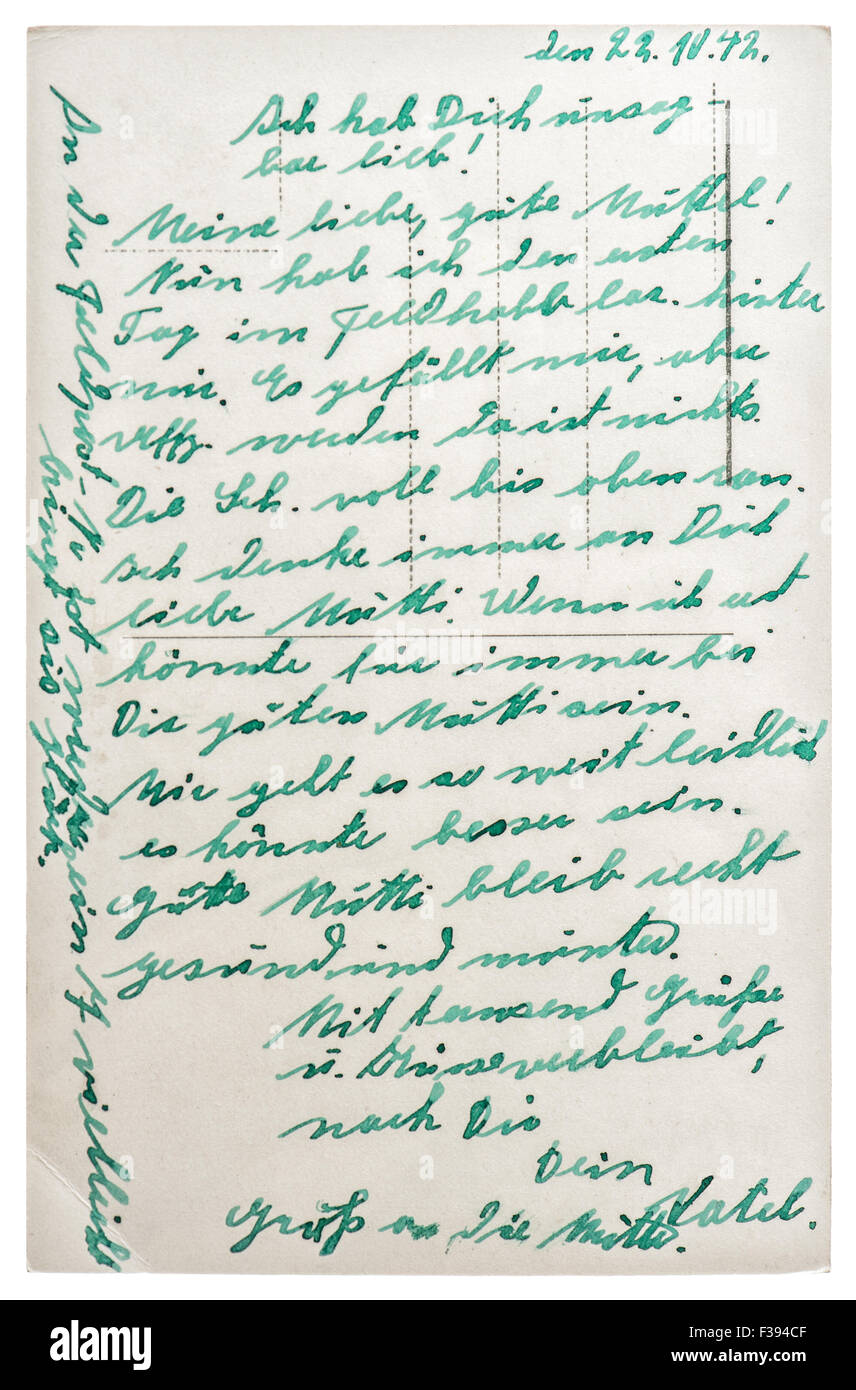 den 22. 10. 42.
Ich hab Dich unsag-
bar lieb!
Meine liebe, gute Muttel!
Nun hab ich den ersten
Tag im Feld hinter
mir. Es gefällt mir, aber
Uffz. werden da ist nichts.
Die Sch. voll bis oben ran.
Ich denke immer an Dich
liebe Mutti. Wenn ich erst
könnte für immer bei
Dir guten Mutti sein.
Mir geht es so weit leidlich
es könnte besser sein.
Gute Mutti bleib recht
gesund und munter.
Mit tausend Grüße
u. Küsse verbleibt,
nach Dir
Dein
Vatel.
Gruß an die Mutter.
An der Feldpost-N. ist vorne ein 17 vielleicht
bringt sie Glück.
alamy
Image ID: F394CF
www.alamy.com